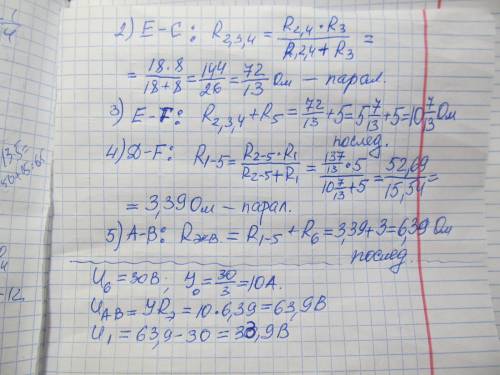 2) E-C: R2,3,4 = R2,4 · R3 / R2,4 + R3 =
= 18·8 / 18+8 = 144 / 26 = 72 / 13 Ом — парал.
3) E-F: R2,3,4 + R5 = 72/13 + 5 = 5 7/13 + 5 = 10 7/13 Ом
послед.
4) D-F: R1-5 = R2-5 · R1 / R2-5 + R1 = 137/13 · 5 / 10 7/13 + 5 = 52,69 / 15,54 =
= 3,39 Ом — парал.
5) A-B: Rэкв. = R1-5 + R6 = 3,39+3=6,39 Ом
послед.
U6 = 30В; У0 = 30/3 = 10А.
UAB = УRэ = 10·6,39 = 63,9В
U1 = 63,9 - 30 = 33,9В